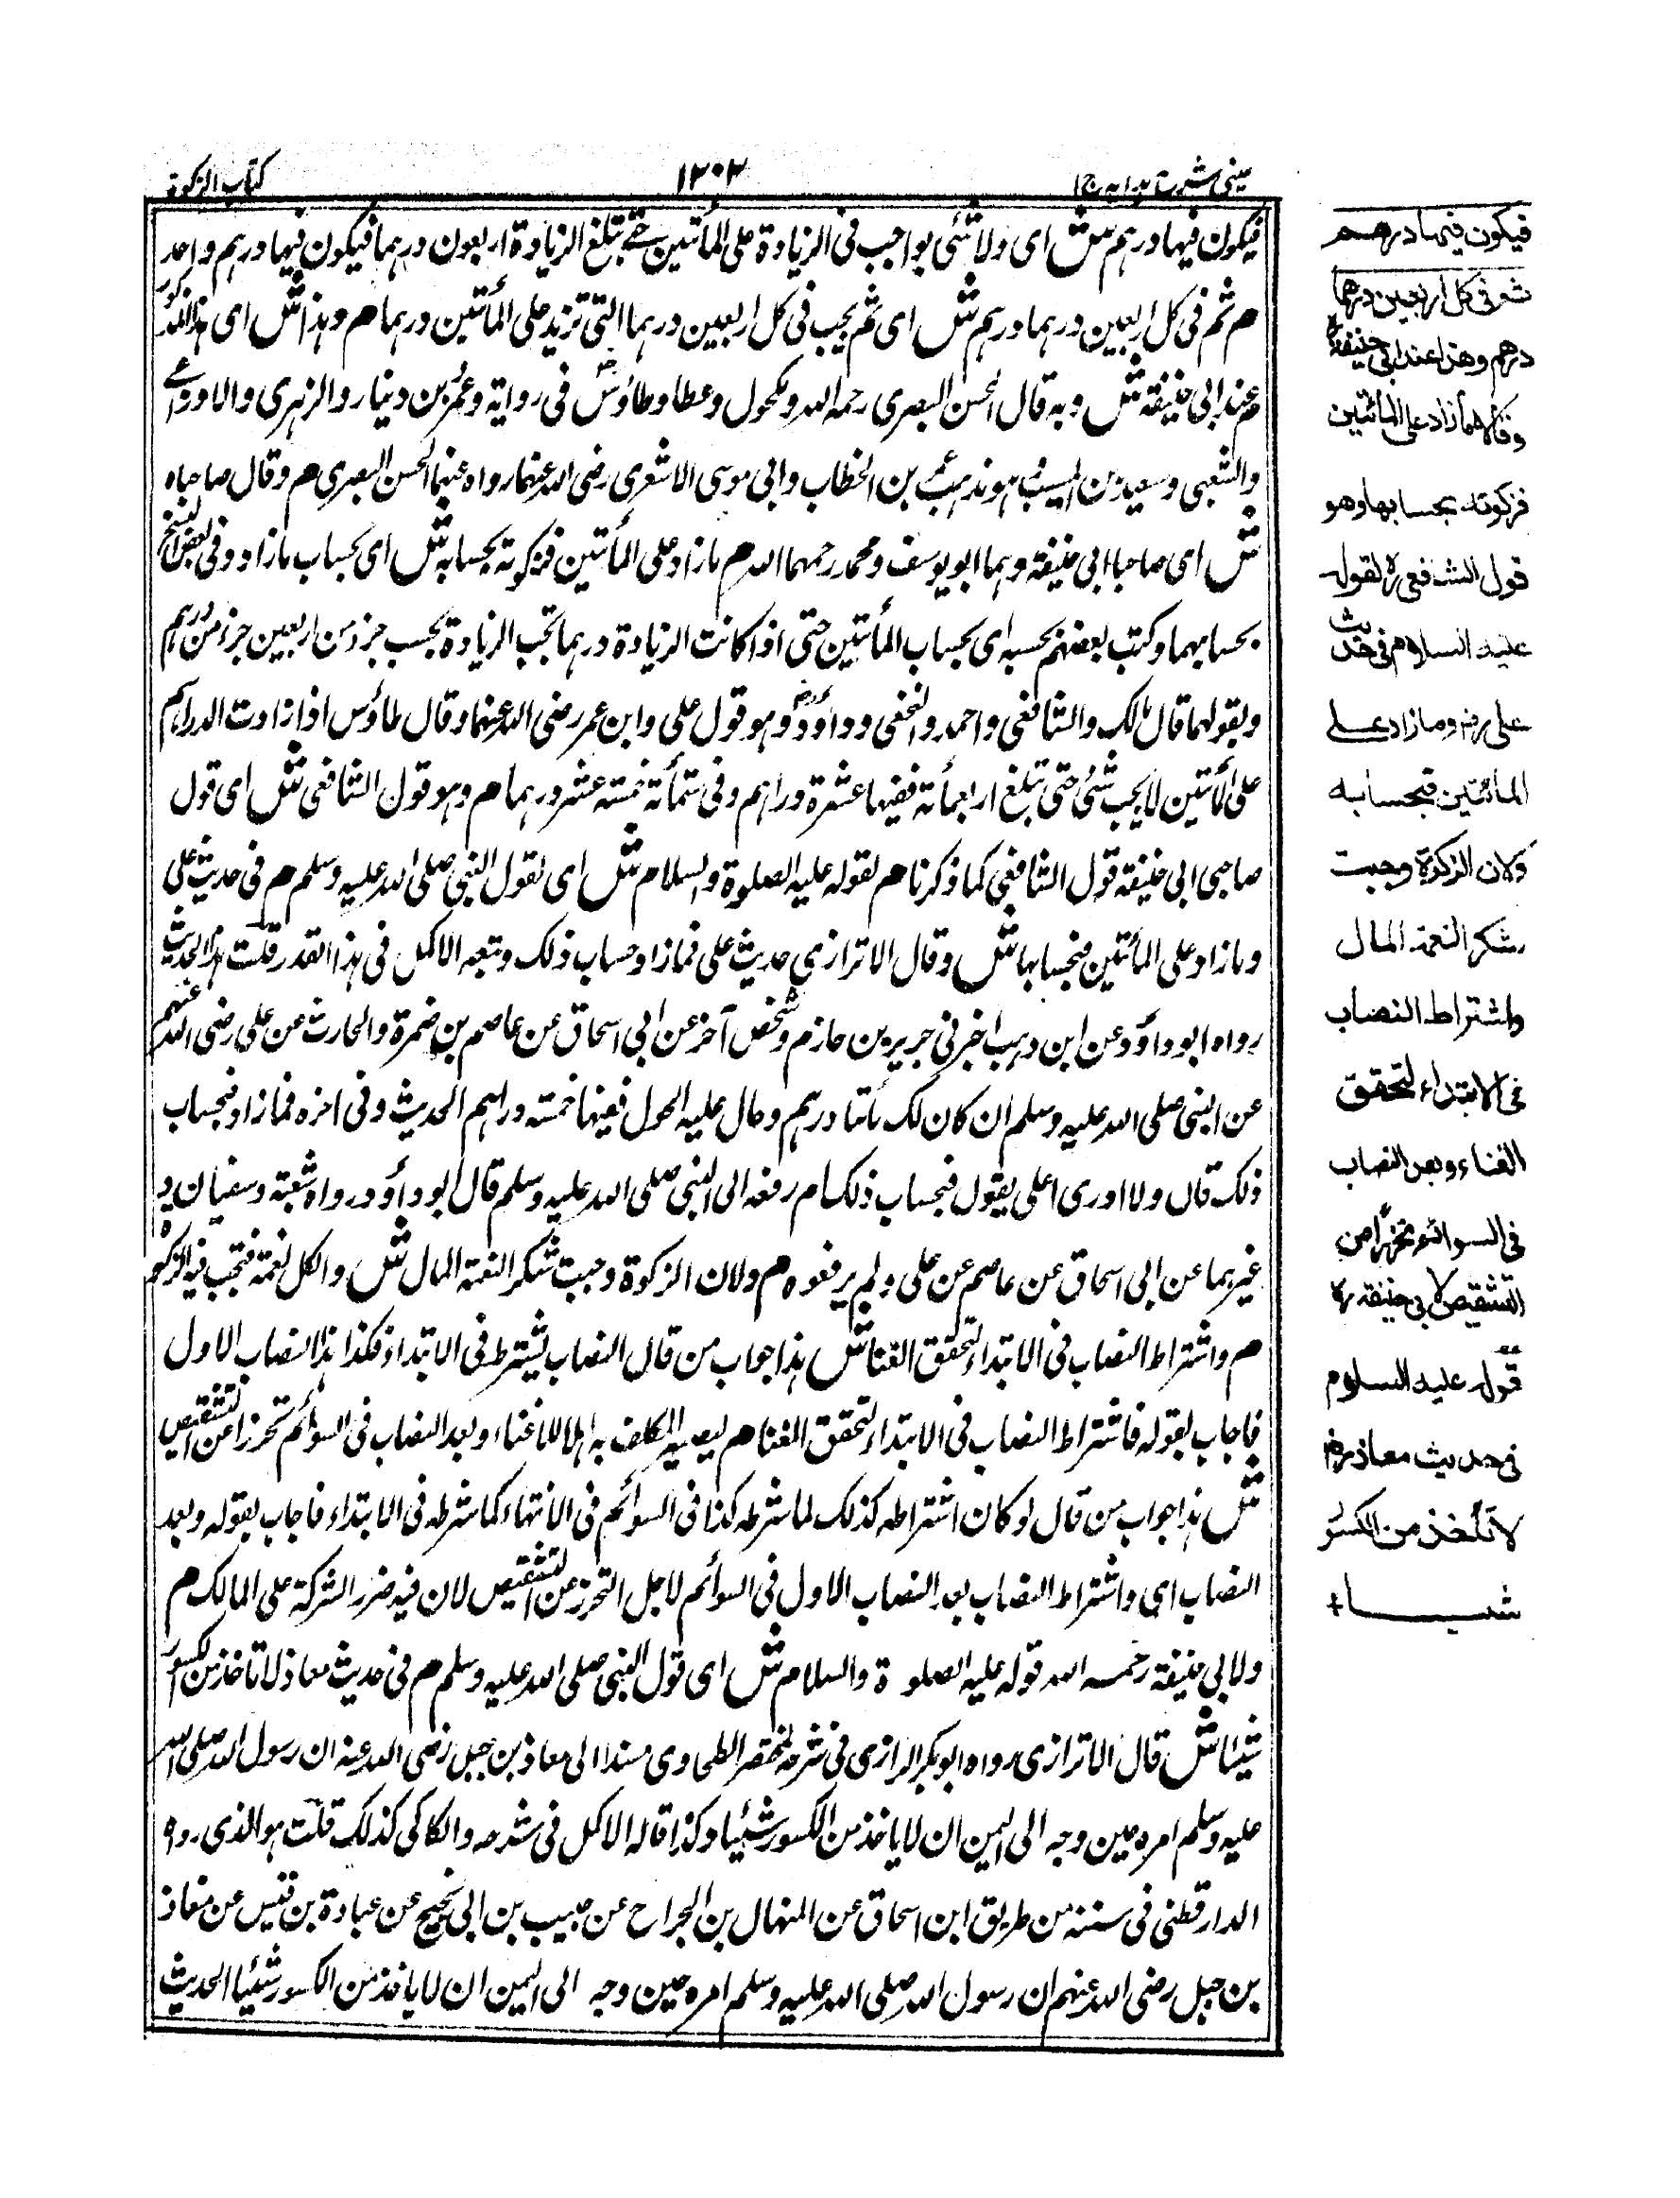 عینی شرح ہدایہ ج۱
۱۲۰۲
کتاب الزکوة
فیکون فیها درهم ش ای ولا شئ بواجب فی الزیادة علی المأتین حتے تبلغ الزیادة اربعون درہما فیکون فیہا درہم واحد
م ثم فی کل اربعین درہما درہم ش ای ثم یجب فی کل اربعین درہما التی تزید علی المأتین درہما م وہذا ش ای ہذا المذکور
م عند ابی حنیفة ش وبہ قال الحسن البصری رحمہ اللہ ومکحول وعطا وطاؤس فی روایة وعمرو بن دینار والزہری والاوزاعے
والشعبی وسعید بن المسیب وہو مذہب عمر بن الخطاب وابی موسی الاشعری رضی اللہ عنہما رواہ عنہما الحسن البصری م وقال صاحباہ
ش ای صاحبا ابی حنیفة وہما ابو یوسف ومحمد رحمہما اللہ م مازاد علی المأتین فزکوتہ بحسابہ ش ای بحساب مازاد وفی بعض النسخ
بحسابہما وکتب بعضہم بحسبہ ای بحساب المأتین حتی اذا کانت الزیادة درہما تجب الزیادة بحسب جزء من اربعین جزء من درہم
وبقولہما قال مالک والشافعی واحمد والنخعی وداؤد وہو قول علی وابن عمر رضی اللہ عنہما وقال طاؤس اذا زادت الدراہم
علی المأتین لایجب شئ حتی تبلغ اربعمأتہ ففیہا عشرة دراہم وفی ستمأتہ خمستہ عشر درہما م وہو قول الشافعی ش ای قول
صاحبی ابی حنیفة قول الشافعی کما ذکرنا م لقولہ علیہ الصلوة والسلام ش ای لقول النبی صلی اللہ علیہ وسلم م فی حدیث علی
ومازاد علی المأتین فبحسابہا ش وقال الاترازی حدیث علی فمازاد فحساب ذلک وتبعہ الاکمل فی ہذا القدر قلت ہذا الحدیث
رواہ ابوداؤد عن ابن وہب اخبرنی جریر بن حازم وشخص آخر عن ابی اسحاق عن عاصم بن ضمرة والحارث عن علی رضی اللہ عنہم
عن النبی صلی اللہ علیہ وسلم ان کان لک مأتا درہم وحال علیہ الحول ففیہا خمستہ دراہم الحدیث وفی اخرہ فمازاد فبحساب
ذلک قال ولا ادری اعلی یقول فبحساب ذلک ام رفعہ الی النبی صلی اللہ علیہ وسلم قال ابوداؤد ورواہ شعبتہ وسفیان و
غیرہما عن ابی اسحاق عن عاصم عن علی ولم یرفعوہ م ولان الزکوة وجبت شکر النعمتہ المال ش والکل نعمة فتجب فیہ الزکوة
م واشتراط النصاب فی الابتداء لتحقق الغنا ش ہذا جواب من قال النصاب یشترط فی الابتداء فکذا ہذا النصاب الاول
فاجاب بقولہ فاشتراط النصاب فی الابتداء لتحقق الغنا م لیصیر المکلف بہ اہلا للاغناء وبعد النصاب فی السوائم تحرزا عن التشقیص
ش ہذا جواب من قال لو کان اشتراطہ کذلک لما شرطہ کذا فی السوائم فی الانتہاء کما شرطہ فی الابتداء فاجاب بقولہ وبعد
النصاب ای واشتراط النصاب بعد النصاب الاول فی السوائم لاجل التحرز عن التشقیص لان فیہ ضرر الشرکة علی المالک م
ولابی حنیفة رحمہ اللہ قولہ علیہ الصلوة والسلام ش ای قول النبی صلی اللہ علیہ وسلم م فی حدیث معاذ لا تاخذ من الکسور
شیئا ش قال الاترازی رواہ ابوبکر الرازی فی شرحہ لمختصر الطحاوی مسندا الی معاذ بن جبل رضی اللہ عنہ ان رسول اللہ صلی اللہ
علیہ وسلم امرہ حین وجہ الی الیمن ان لا یاخذ من الکسور شیئا وکذا قالہ الاکمل فی شرحہ والکاکی کذلک قلت ہو الذی رواہ
الدارقطنی فی سننہ من طریق ابن اسحاق عن المنہال بن الجراح عن حبیب بن ابی نجیح عن عبادة بن قیس عن معاذ
بن جبل رضی اللہ عنہم ان رسول اللہ صلی اللہ علیہ وسلم امرہ حین وجہ الی الیمن ان لا یاخذ من الکسور شیئا الحدیث
فیکون فیها درهم
ثم فی کل اربعین درهما
درهم وهذا عند ابی حنیفة رہ
وقالا ما زاد علی المائتین
فزکوته بحسابها وهو
قول الشافعی رہ لقوله
علیه السلام فی حدیث
علی رض وما زاد علے
المائتین فبحسابه
ولان الزکوة وجبت
شکر النعمة المال
واشتراط النصاب
فی الابتداء لتحقق
الغناء وبعد النصاب
فی السوائم تحرزا من
التشقیص ولابی حنیفة رہ
قوله علیه السلام
فی حدیث معاذ رض
لا تأخذ من الکسور
شیـــــا